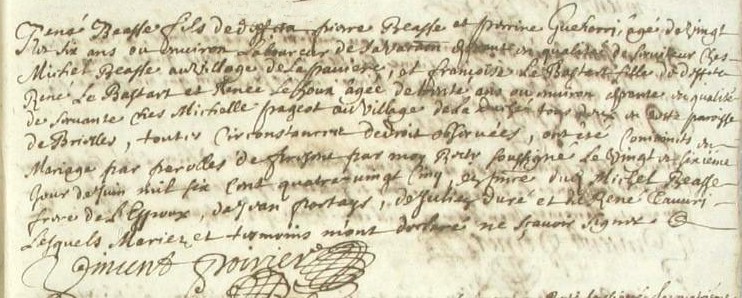 René Beasse fils de deffunts pierre Beasse et perrine Guehorri âgé de vingt
et six ans ou environ Laboureur de sa vacation demeurant en qualité de serviteur chez
Michel Beasse au village de la paviere, et françoise Le Bastart fille de deffuts
René Le Bastart et Renée Le âgée de trente ans ou environ en qualité
de servante chés Michelle pageot au village de la touts deux en cette parroisse
de Brielles, touttes Circonstances de droit observées, ont été Conjoints en
Mariage par parolles de present par moy soussigné Le vingt et sixieme
Jour de Juin mil six Cent quatre vingt Cinq, en presence dud. Michel Beasse
frere de l'Espoux, de Jean portays, de Julien duré et de René
Lesquels Mariez et temoins m'ont declaré ne sçavoir signer
Vincent poirier